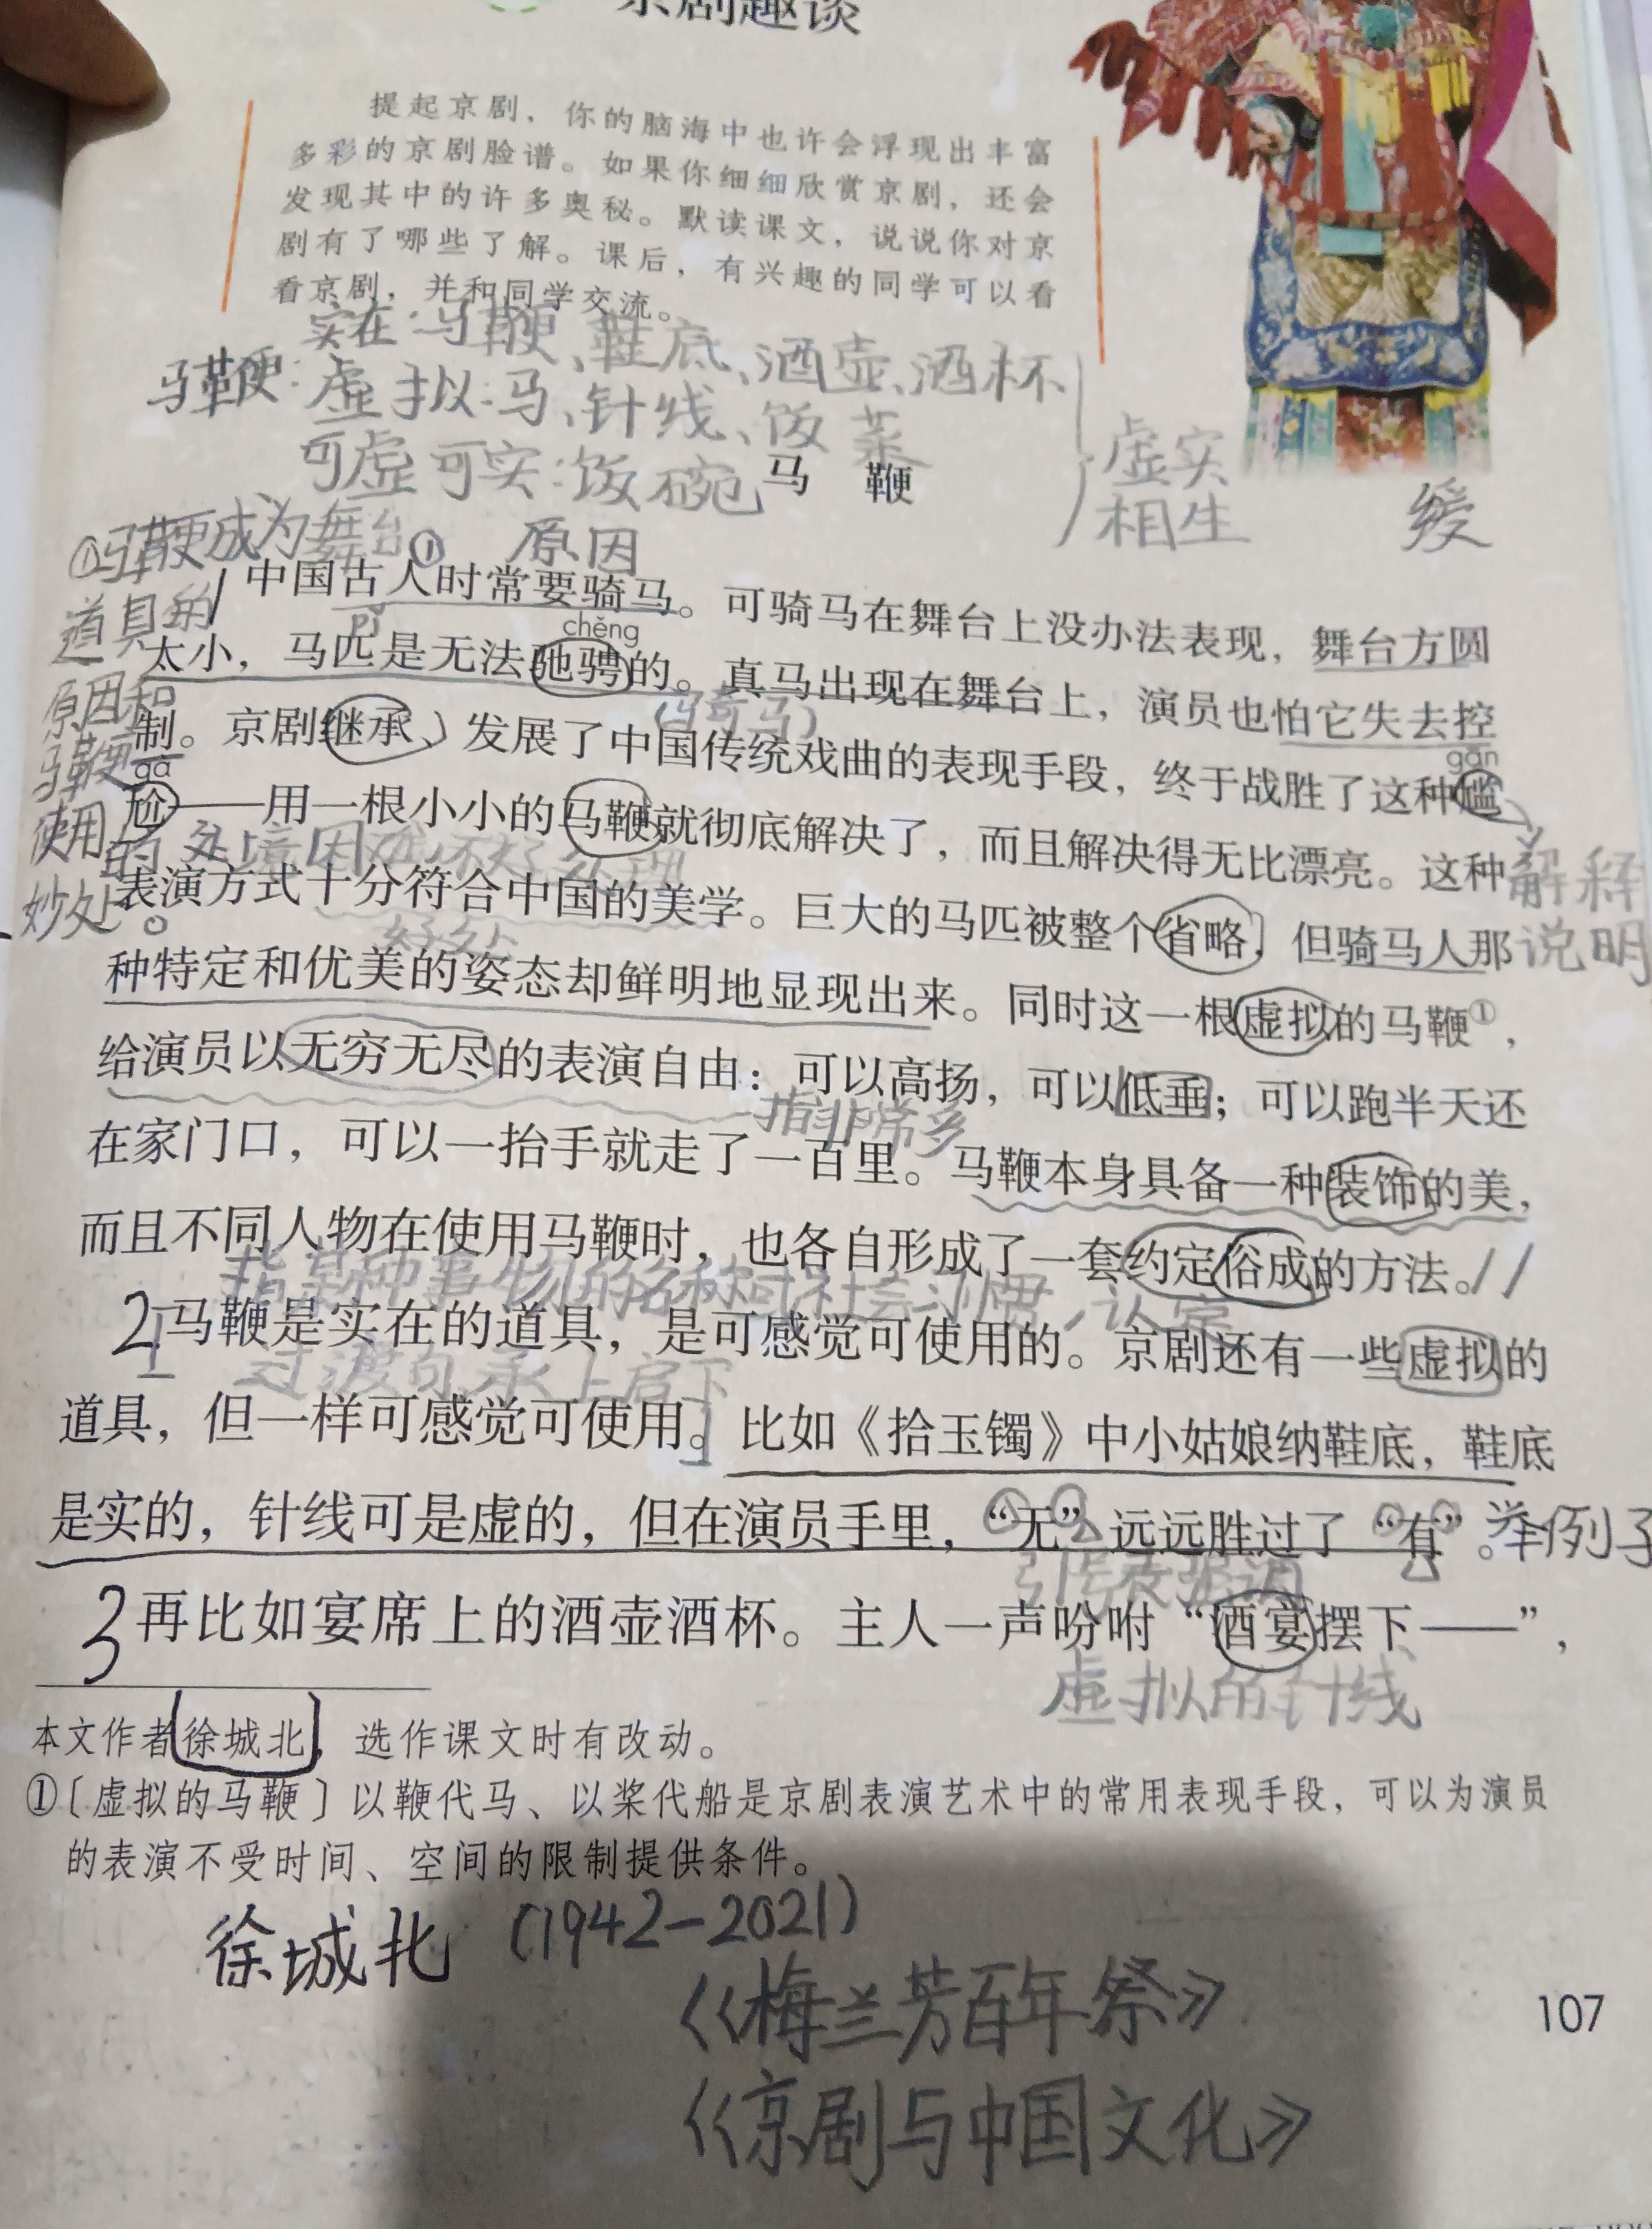 京剧趣谈
提起京剧，你的脑海中也许会浮现出丰富
多彩的京剧脸谱。如果你细细欣赏京剧，还会
发现其中的许多奥秘。默读课文，说说你对京
剧有了哪些了解。课后，有兴趣的同学可以看
看京剧，并和同学交流。
实在：马鞭、鞋底、酒壶、酒杯
马鞭：虚拟：马、针线、饭菜
可虚可实：饭碗
虚实
相生
马 鞭
缓
①马鞭成为舞台
道具的
原因和
马鞭
使用的
妙处。
① 原因
中国古人时常要骑马。可骑马在舞台上没办法表现，舞台方圆
pǐ chěng
太小，马匹是无法驰骋的。真马出现在舞台上，演员也怕它失去控
(骑马)
制。京剧继承、发展了中国传统戏曲的表现手段，终于战胜了这种尴
gà gān
尬——用一根小小的马鞭就彻底解决了，而且解决得无比漂亮。这种
处境困难，不好处理
解释
说明
表演方式十分符合中国的美学。巨大的马匹被整个省略，但骑马人那
好处
种特定和优美的姿态却鲜明地显现出来。同时这一根虚拟的马鞭①，
给演员以无穷无尽的表演自由：可以高扬，可以低垂；可以跑半天还
指非常多
在家门口，可以一抬手就走了一百里。马鞭本身具备一种装饰的美，
而且不同人物在使用马鞭时，也各自形成了一套约定俗成的方法。
指某种事物的名称或社会习惯，认定
2 马鞭是实在的道具，是可感觉可使用的。京剧还有一些虚拟的
过渡句，承上启下
道具，但一样可感觉可使用。比如《拾玉镯》中小姑娘纳鞋底，鞋底
是实的，针线可是虚的，但在演员手里，“无”远远胜过了“有”。
举例子
引号表强调
3 再比如宴席上的酒壶酒杯。主人一声吩咐“酒宴摆下——”，
虚拟的针线
本文作者徐城北，选作课文时有改动。
①〔虚拟的马鞭〕以鞭代马、以桨代船是京剧表演艺术中的常用表现手段，可以为演员
的表演不受时间、空间的限制提供条件。
徐城北 (1942-2021)
《梅兰芳百年祭》
《京剧与中国文化》
107